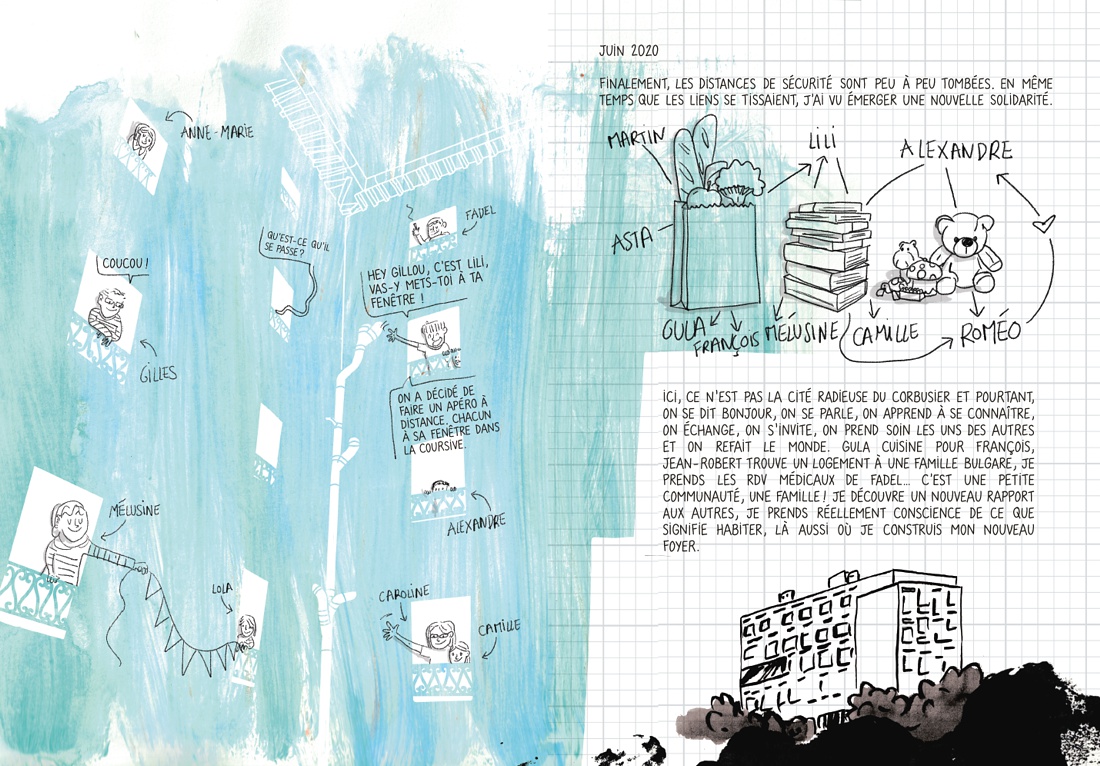 ANNE-MARIE
FADEL
QU'EST-CE QU'IL
SE PASSE?
COUCOU !
HEY GILLOU, C'EST LILI,
VAS-Y METS-TOI À TA
FENÊTRE !
GILLES
ON A DÉCIDÉ DE
FAIRE UN APÉRO À
DISTANCE. CHACUN
À SA FENÊTRE DANS
LA COURSIVE.
MÉLUSINE
ALEXANDRE
LOLA
CAROLINE
CAMILLE
JUIN 2020
FINALEMENT, LES DISTANCES DE SÉCURITÉ SONT PEU À PEU TOMBÉES. EN MÊME
TEMPS QUE LES LIENS SE TISSAIENT, J'AI VU ÉMERGER UNE NOUVELLE SOLIDARITÉ.
MARTIN
LILI
ALEXANDRE
ASTA
GULA
FRANÇOIS
MÉLUSINE
CAMILLE
ROMÉO
ICI, CE N'EST PAS LA CITÉ RADIEUSE DU CORBUSIER ET POURTANT,
ON SE DIT BONJOUR, ON SE PARLE, ON APPREND À SE CONNAÎTRE,
ON ÉCHANGE, ON S'INVITE, ON PREND SOIN LES UNS DES AUTRES
ET ON REFAIT LE MONDE. GULA CUISINE POUR FRANÇOIS,
JEAN-ROBERT TROUVE UN LOGEMENT À UNE FAMILLE BULGARE, JE
PRENDS LES RDV MÉDICAUX DE FADEL... C'EST UNE PETITE
COMMUNAUTÉ, UNE FAMILLE ! JE DÉCOUVRE UN NOUVEAU RAPPORT
AUX AUTRES, JE PRENDS RÉELLEMENT CONSCIENCE DE CE QUE
SIGNIFIE HABITER, LÀ AUSSI OÙ JE CONSTRUIS MON NOUVEAU
FOYER.